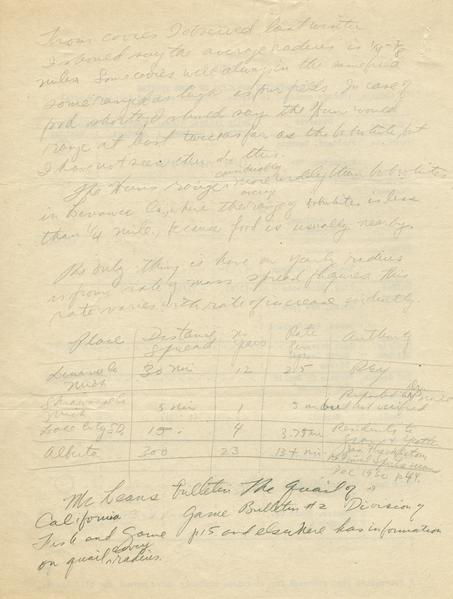 From covies I observed last winter
I should say the average radius is 1/4-3/8
miles. Some covies were always in the same field
some ranged as high as per field. In case of
food shortage I should say the Hun would
range at least twice as far as the bobwhite, but
I have not seen them do this.
The Huns range considerably more widely than bobwhites
in Lenawee Co, where the range of bobwhites is less
than 1/4 mile, because food is usually nearby.
The only thing is have on yearly radius
is from rate of mass spread figures. This
rate varies with rate of increase evidently.
Place Distance Spread No Years Rate Per Authority
Lenawee Co Mich 30 mi 12 2.5 Rey
Co Mich 5 mi 1 5 Reported by not verified
Lake City SD, 15 4 3.75 mi Residents to
Alberta 300 23 13+ mi
Dec 1930 p 44.
McLeans Bulletin The Quail of
California Game Bulletin #2 Division of
Fish and Game p15 and elsewhere has information
on quail covey radius.